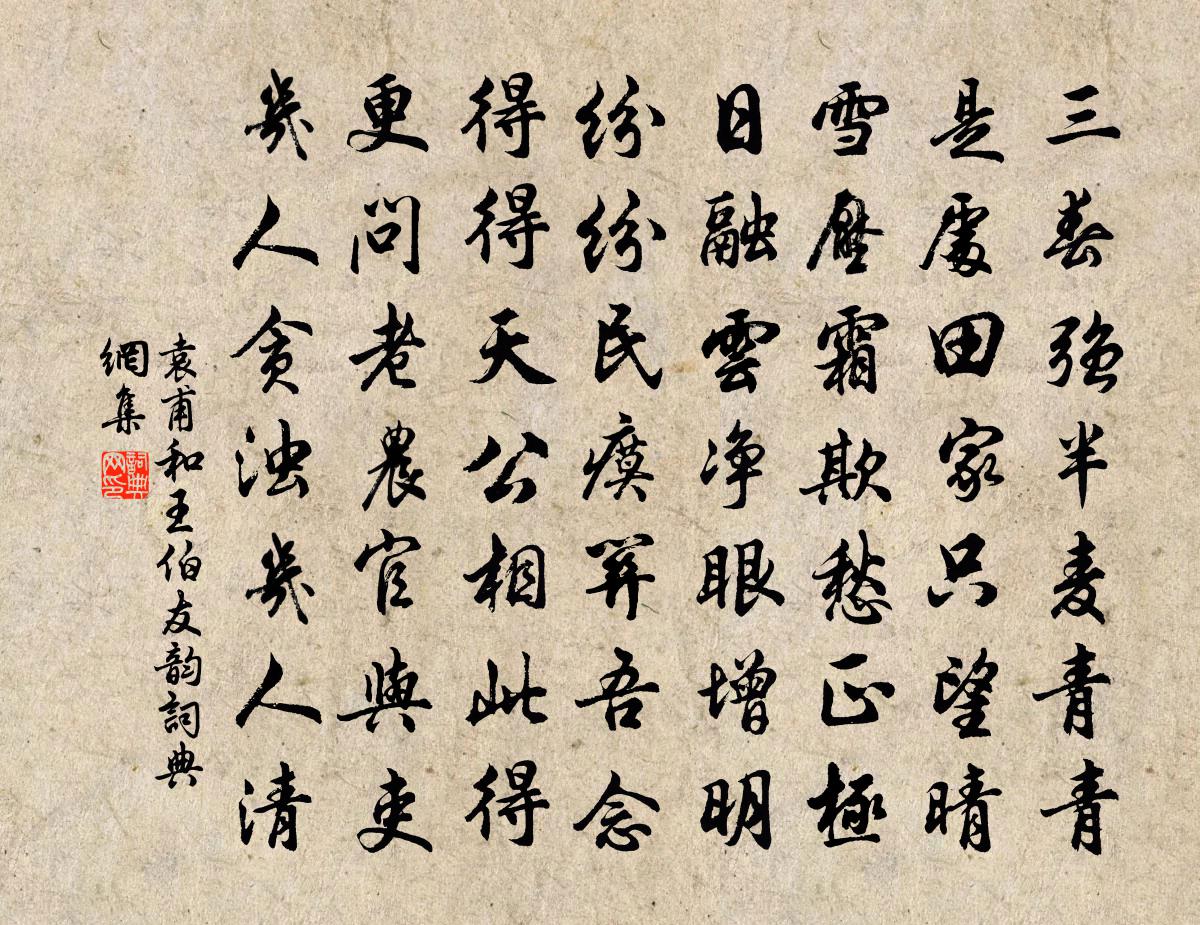 三春強半麦青青
是處田家只望晴
雪壓霜欺愁正極
日融雲净眼增明
紛紛民瘼算吾念
得得天公相此得
更問老農官與吏
幾人貪浊幾人清
袁甫和王伯友韵詞典
網集
詞典
网印